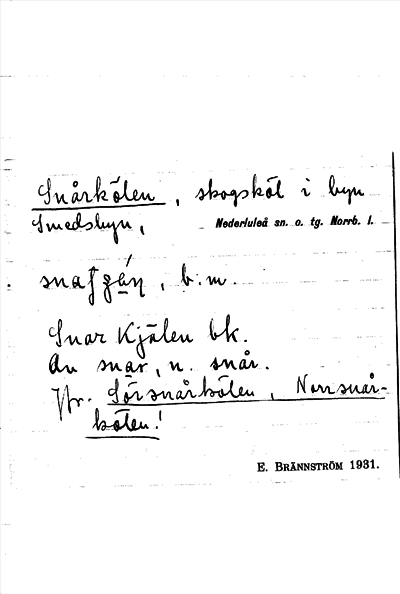 Snårkölen, skogsköl i byn
Smedsbyn, Nederluleå sn. o. tg. Norrb. l.
b. m.
Snar Kjälen bk.
Av snar, n. snår.
Jfr. Sörsnårkölen, Norrsnår-
kölen!
E. BRÄNNSTRÖM 1931.